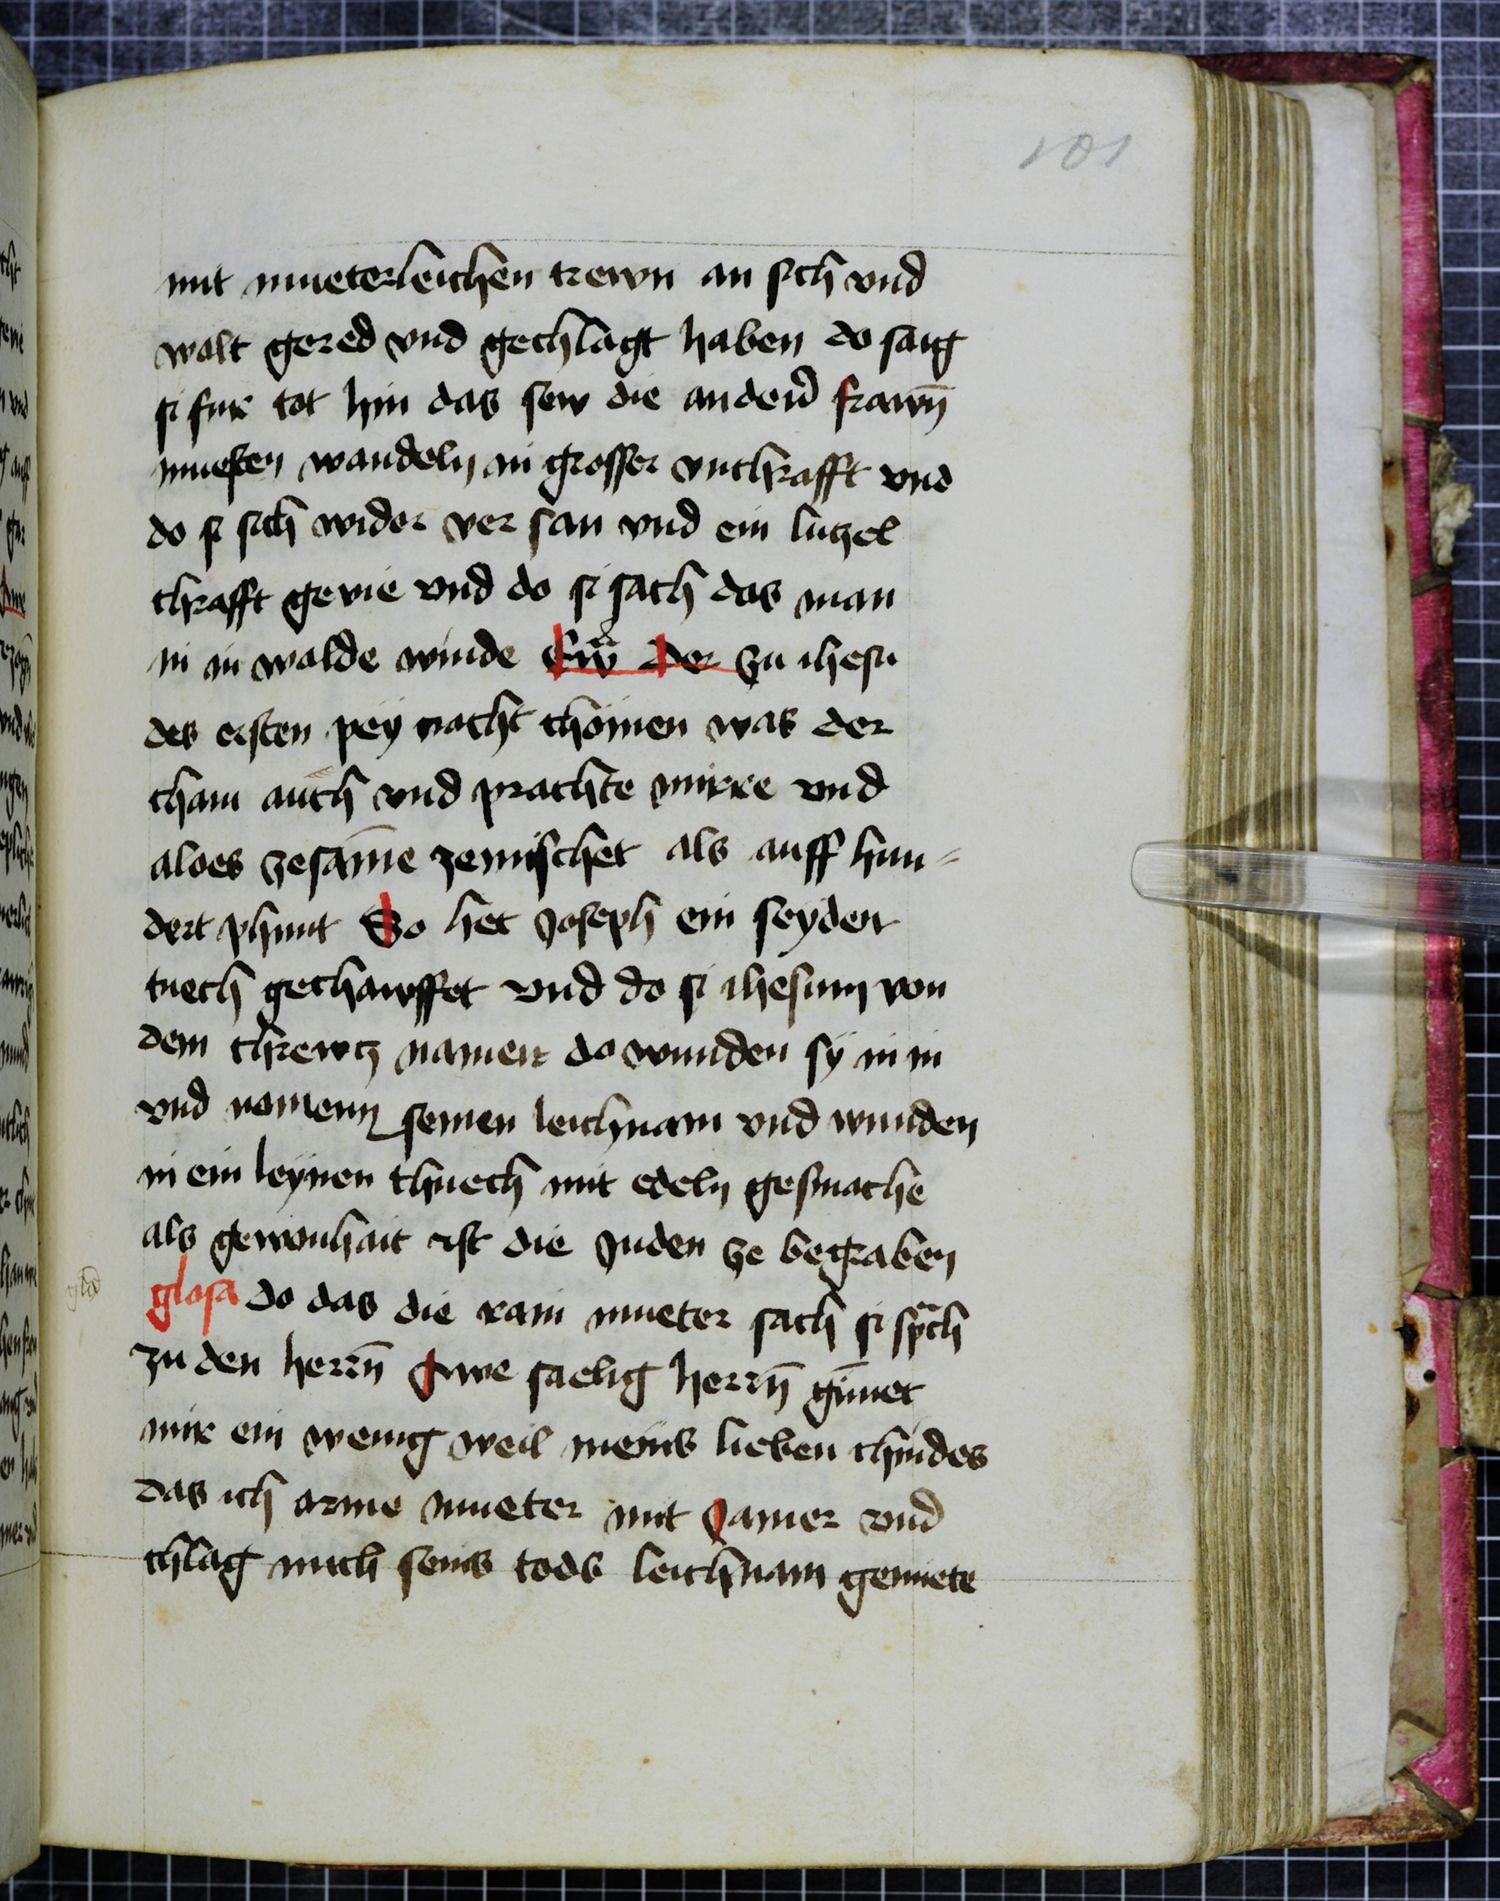 101
mit mueterleichen trewn an sich vnd
wolt gered vnd gechlagt haben do saig
si fur tot hin das sew die anderñ frawn̄
muesten wandeln in grosser vnchrafft vnd
do si sich wider ver san vnd ein lutzel
chrafft gevie vnd do si sach das man
in in walde winde Ew̄ der zu ihesu
des ersten pey nacht chömen was der
cham auch vnd prachte mirre vnd
aloes zesam̄e gemischet als auff hun-
dert phunt So het Joseph ein seyden
tuech gechawffet vnd do si ihesum von
dem chrewtz namen do wunden sy in in
vnd nomenn seinen leichnam vnd wunden
in ein leynen thuech mit edeln gesmache
als gewonhait ist die Juden ze begraben
glosa do das die rain mueter sach si sprach
zu den herrn̄ Owe saelig herrn̄ gun̄et
mir ein wenig weil meins lieben chindes
das ich arme mueter mit Jamer vnd
chlag mich seins tods leichnam gemiete